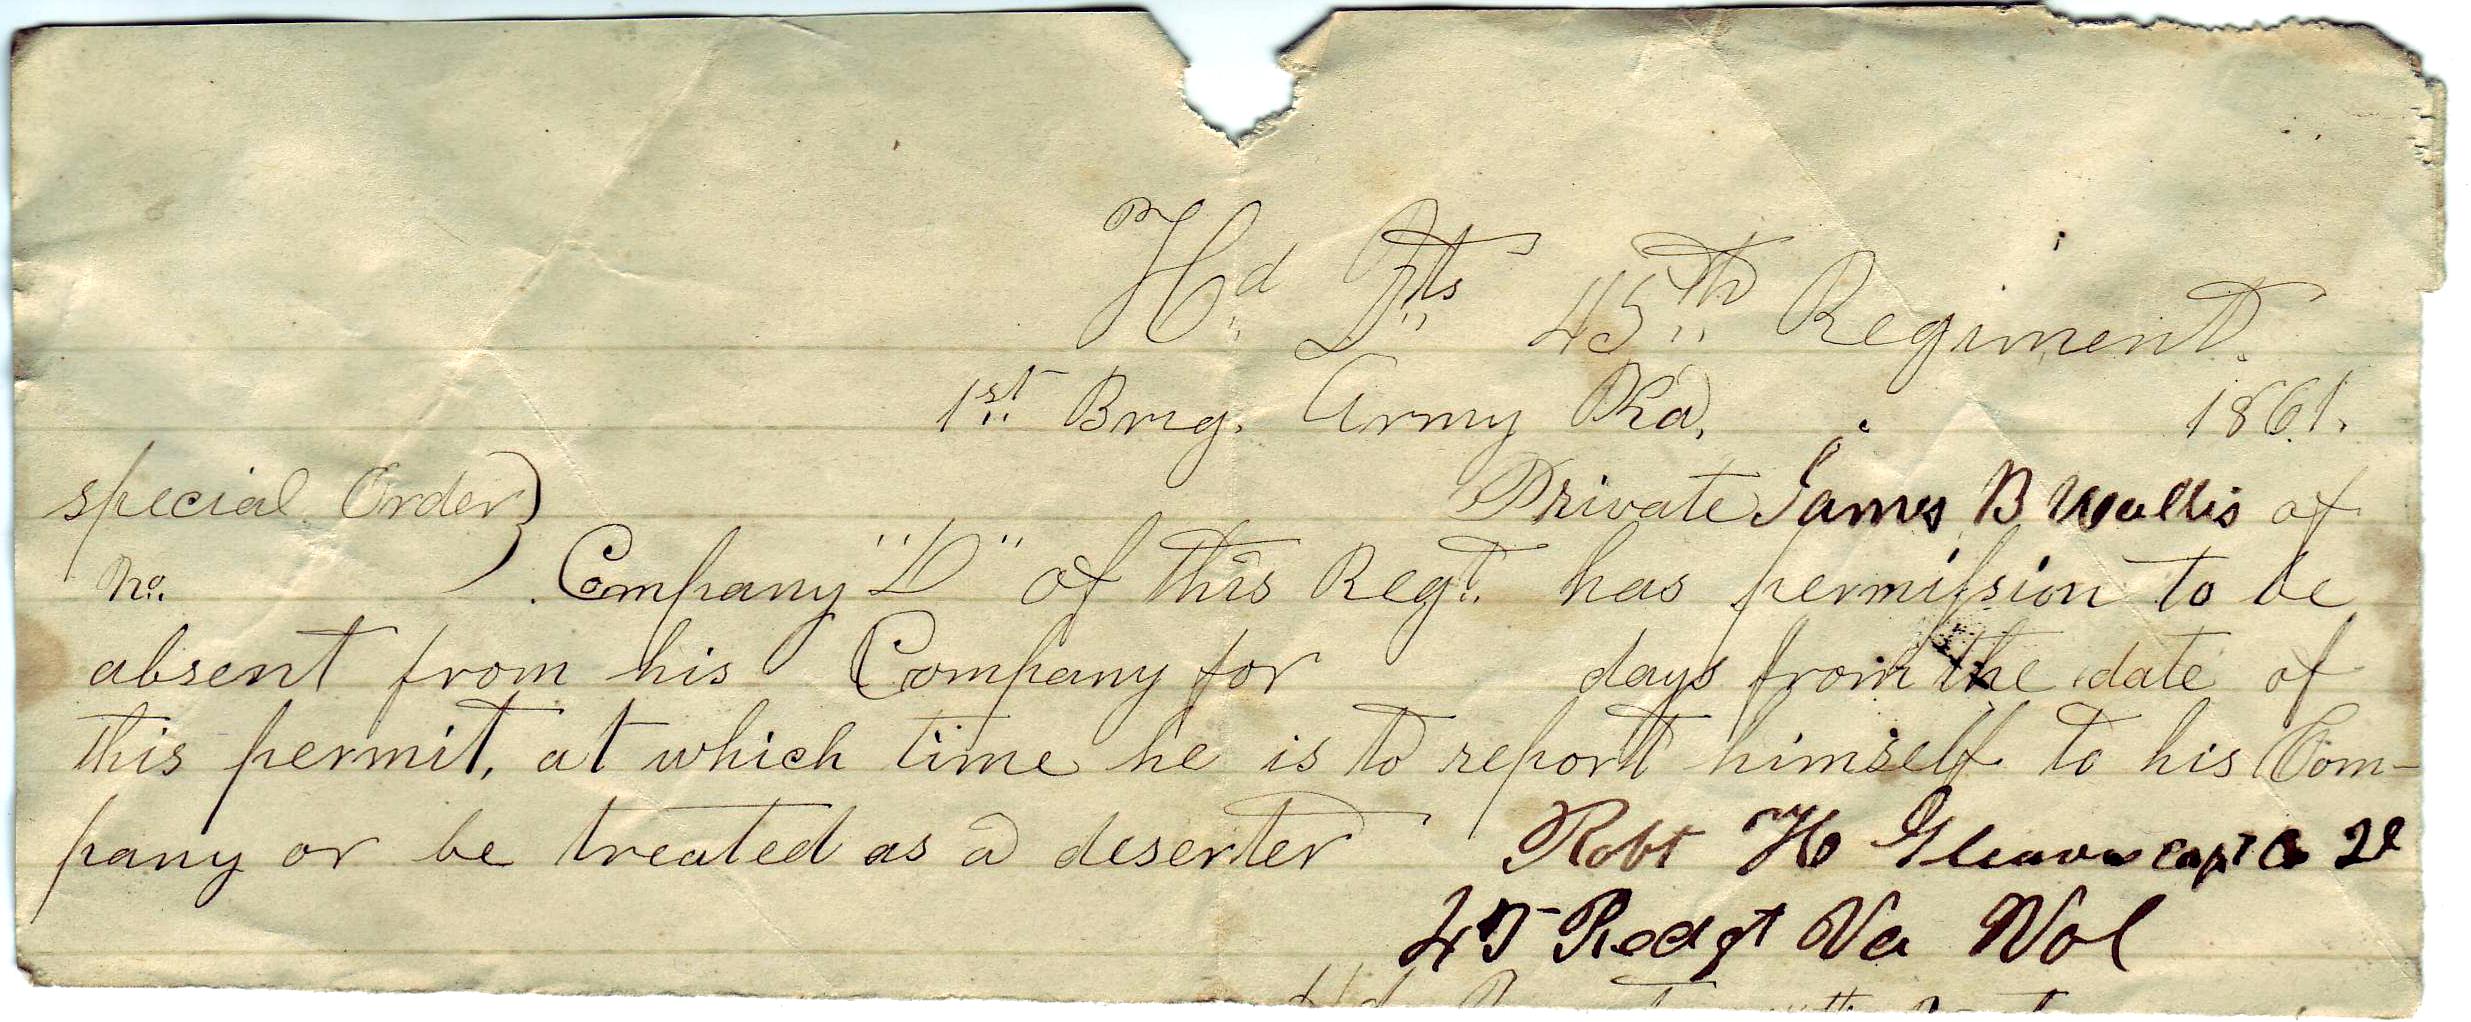 Hd Qrts 45th Regiment.
1st Brig. Army Ka. 1861.
special Order) Private James B Wallis of
No. Company "D" of this Regt. has permission to be
absent from his Company for days from the date of
this permit, at which time he is to report himself to his Com-
pany or be treated as a deserter Robt H Gleaves Capt Co
45 Redgt Va Vol